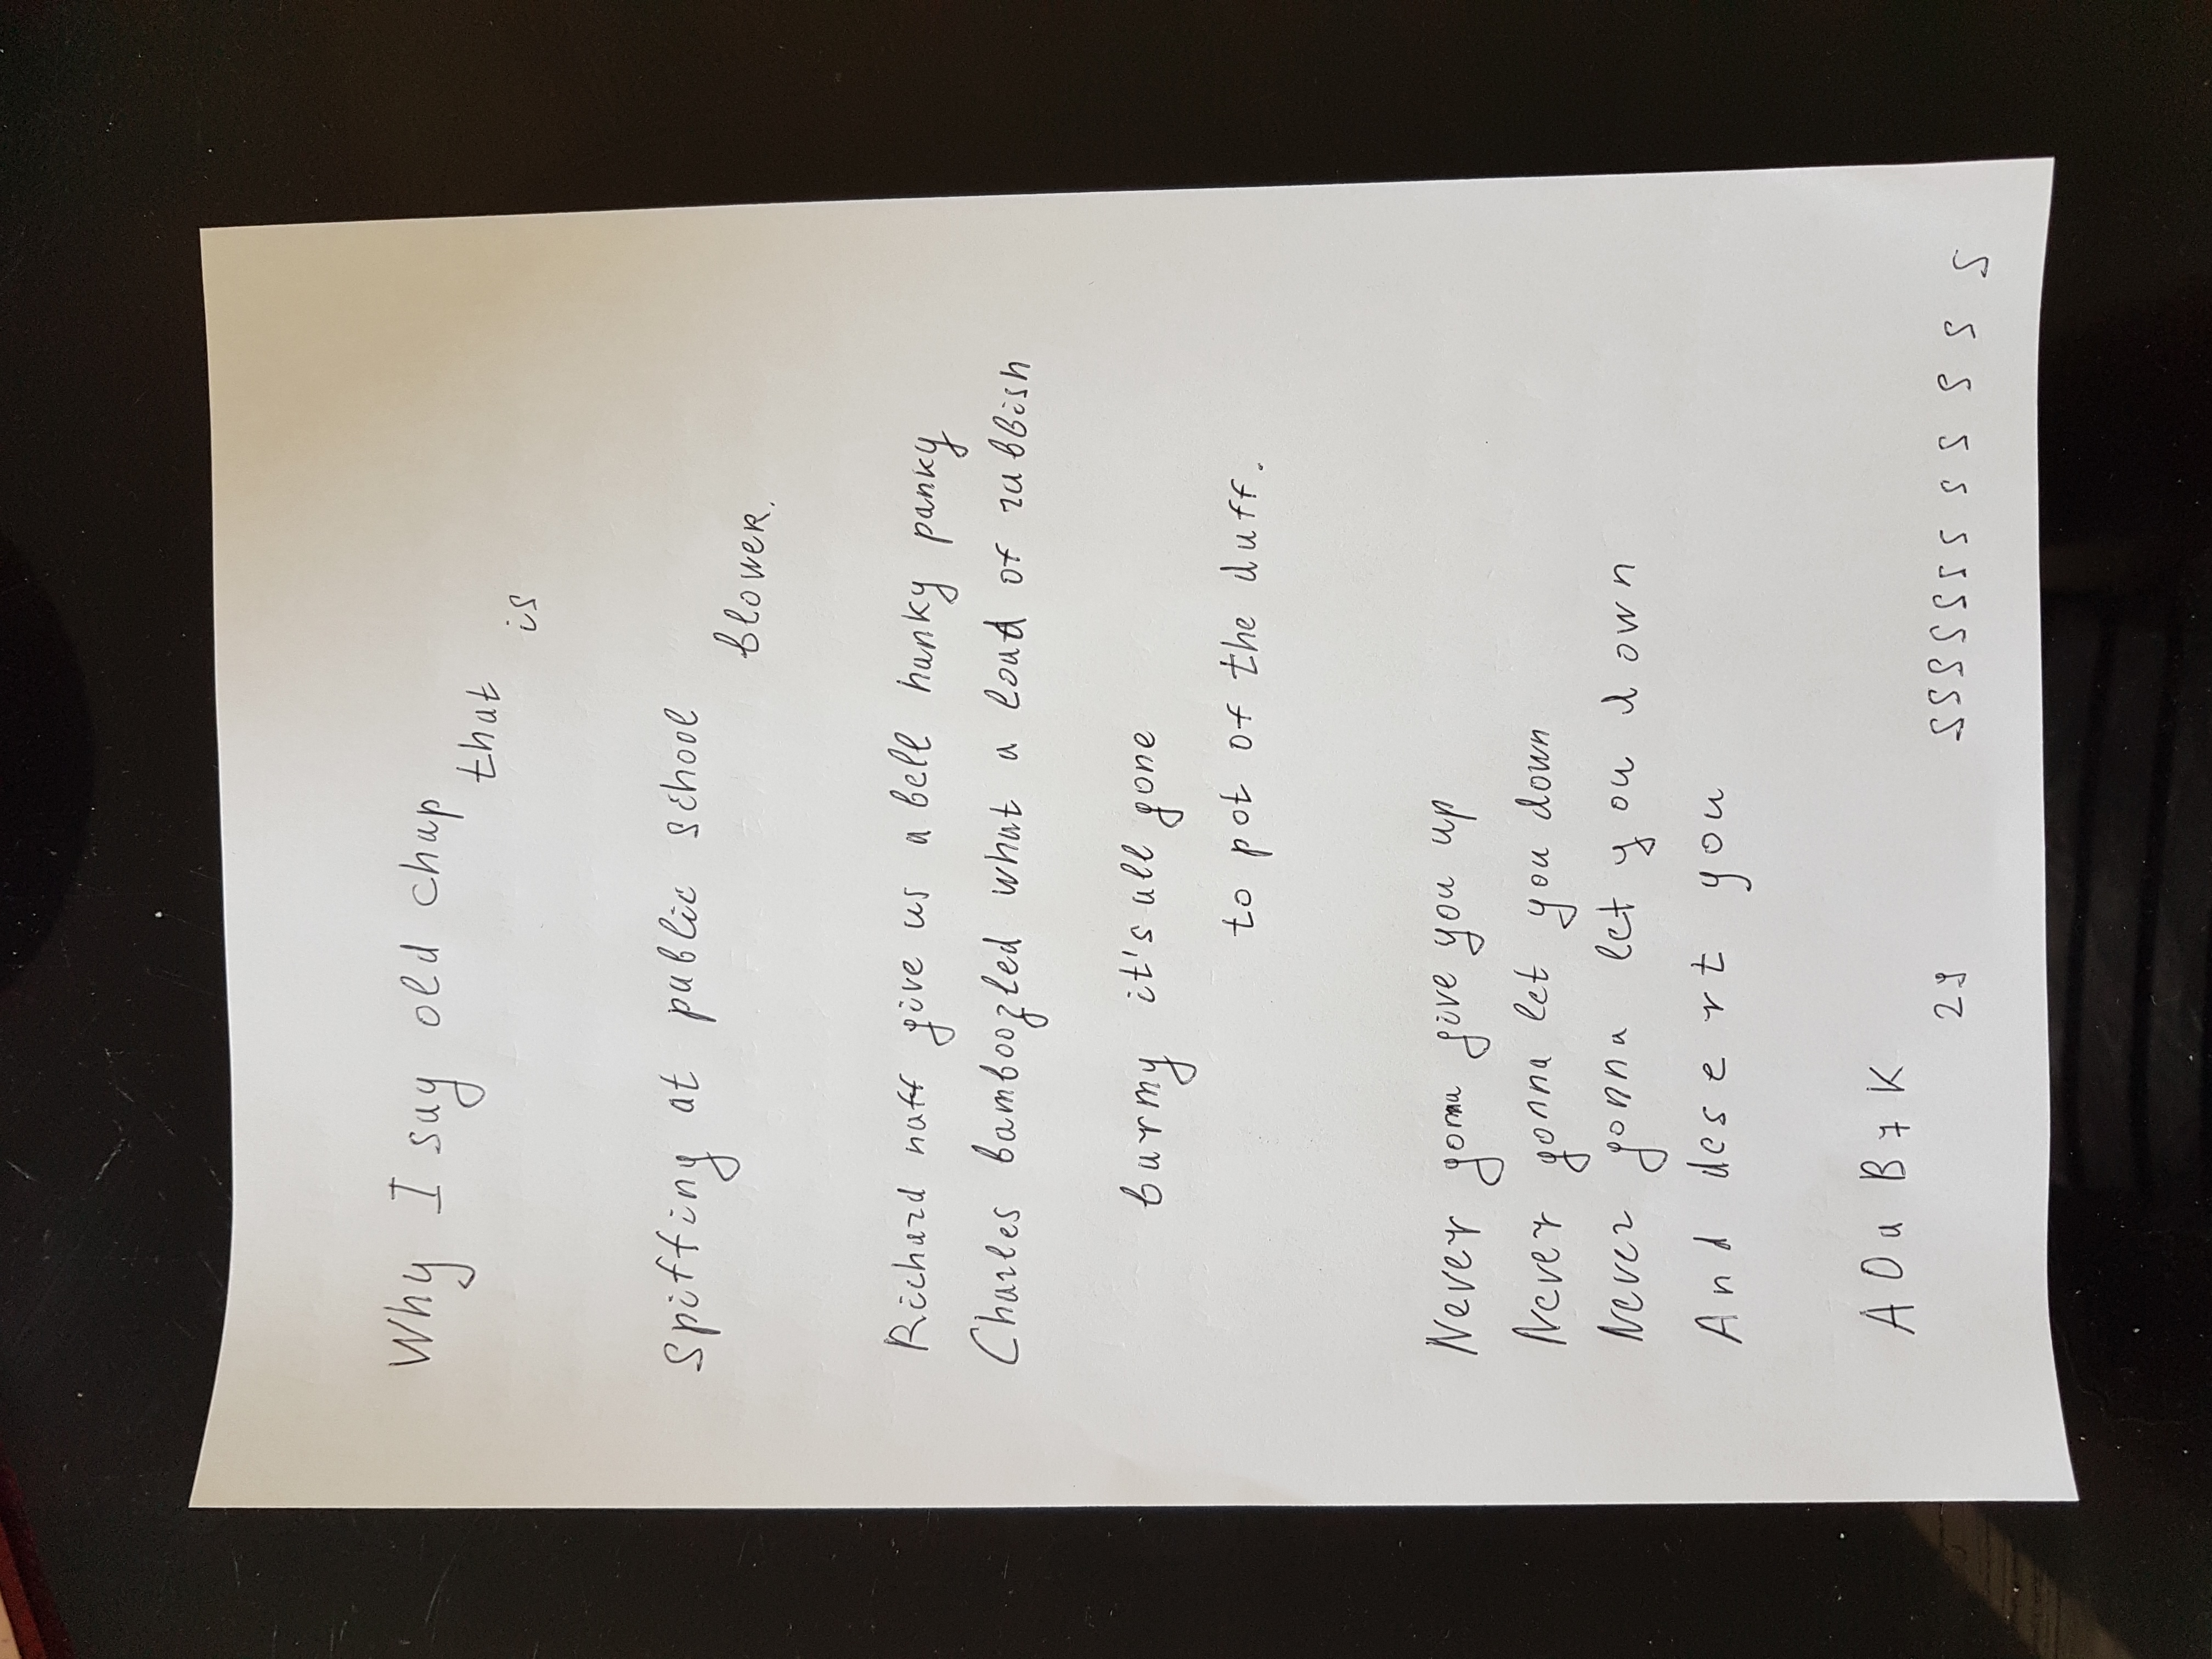 Why I say old chap that is
Spiffing at public school
blower.
Richard naff give us a bell hanky panky
Charles bamboozled what a load of rubbish
barmy it's all gone
to pot of the duff.
Never gonna give you up
Never gonna let you down
Never gonna let you down
And desert you
A O a B 7 K
29 SSSSSSS S S S S S